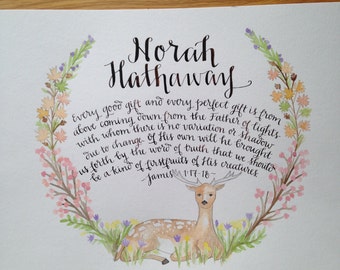 Norah
Hathaway
Every good gift and every perfect gift is from
above coming down from the Father of lights
with whom there is no variation or shadow
due to change of His own will he brought
us forth by the word of truth that we should
be a kind of firstfruits of His creatures
-James 1:17-18-